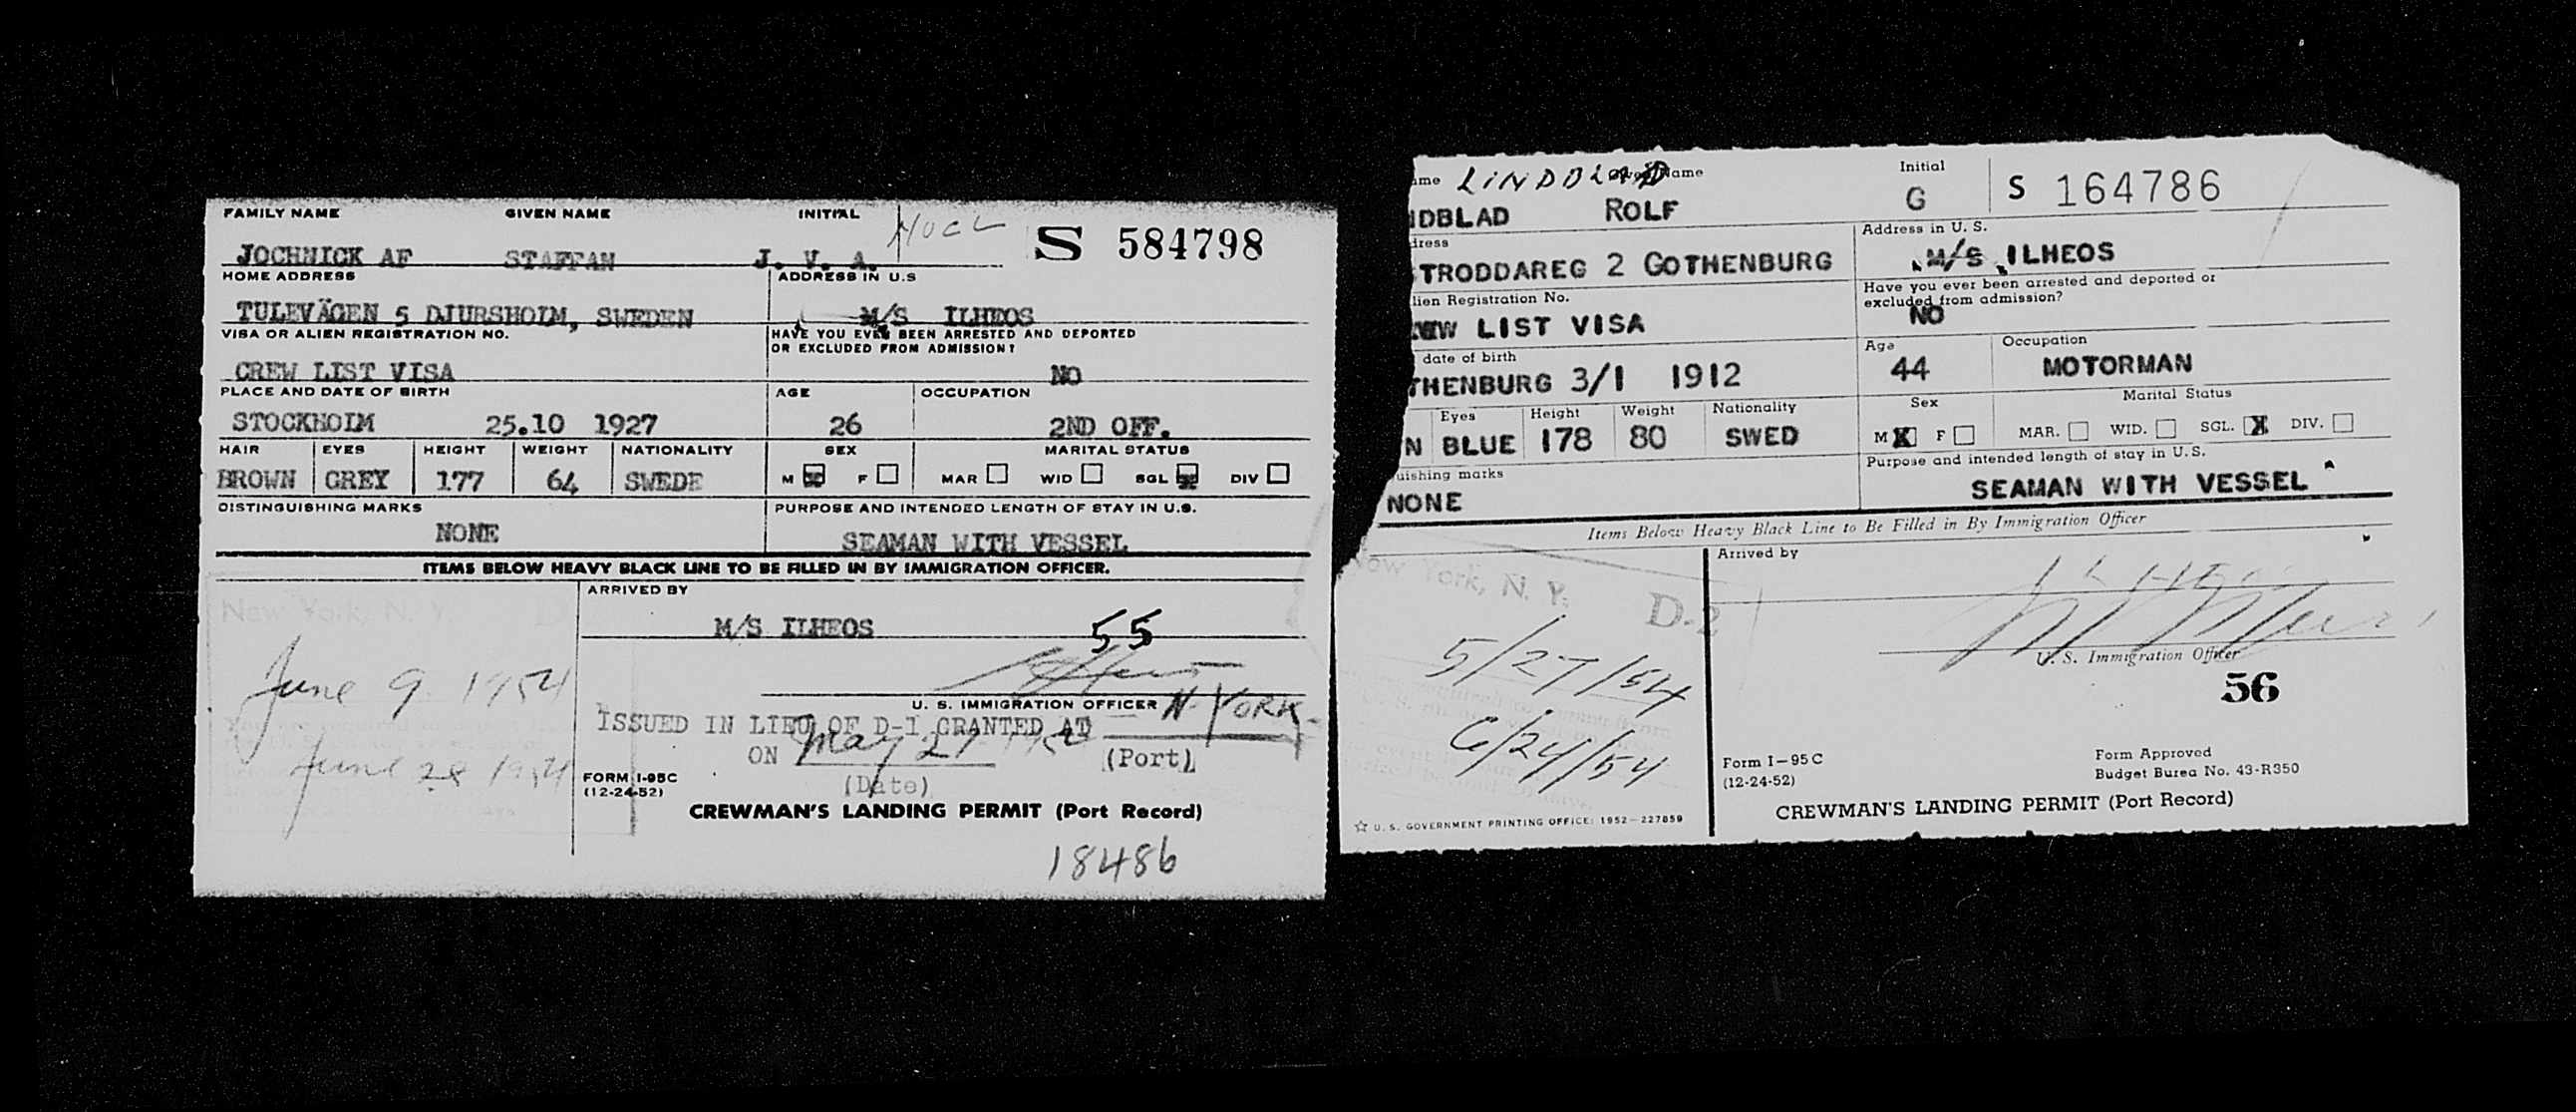 FAMILY NAME GIVEN NAME INITIAL
S 584798
JOCHNICK AF STAFFAN J. V. A.
HOME ADDRESS ADDRESS IN U.S
TULEVÄGEN 5 DJURSHOLM, SWEDEN M/S ILHEOS
VISA OR ALIEN REGISTRATION NO. HAVE YOU EVER BEEN ARRESTED AND DEPORTED
OR EXCLUDED FROM ADMISSION?
CREW LIST VISA NO
PLACE AND DATE OF BIRTH AGE OCCUPATION
STOCKHOLM 25.10 1927 26 2ND OFF.
HAIR EYES HEIGHT WEIGHT NATIONALITY SEX MARITAL STATUS
BROWN GREY 177 64 SWEDE M F MAR WID SGL DIV
DISTINGUISHING MARKS PURPOSE AND INTENDED LENGTH OF STAY IN U.S.
NONE SEAMAN WITH VESSEL
ITEMS BELOW HEAVY BLACK LINE TO BE FILLED IN BY IMMIGRATION OFFICER.
New York, N. Y. ARRIVED BY
M/S ILHEOS 55
June 9 1954
U. S. IMMIGRATION OFFICER N-YORK-
ISSUED IN LIEU OF D-1 GRANTED AT
ON May 27 (Port)
June 28 1954
FORM I-95C (Date)
(12-24-52)
CREWMAN'S LANDING PERMIT (Port Record)
18486
ame LINDBLAD Given Name Initial
S 164786
NDBLAD ROLF G
dress Address in U. S.
TRODDAREG 2 GOTHENBURG M/S ILHEOS
lien Registration No. Have you ever been arrested and deported or
excluded from admission?
EW LIST VISA NO
date of birth Age Occupation
THENBURG 3/1 1912 44 MOTORMAN
Eyes Height Weight Nationality Sex Marital Status
N BLUE 178 80 SWED M X F MAR. WID. SGL. X DIV.
uishing marks Purpose and intended length of stay in U.S.
NONE SEAMAN WITH VESSEL
Items Below Heavy Black Line to Be Filled in By Immigration Officer
New York, N. Y. D-2 Arrived by
5/27/54
U. S. Immigration Officer
56
6/24/54
Form I-95C Form Approved
(12-24-52) Budget Burea No. 43-R350
CREWMAN'S LANDING PERMIT (Port Record)
☆ U. S. GOVERNMENT PRINTING OFFICE: 1952—227859